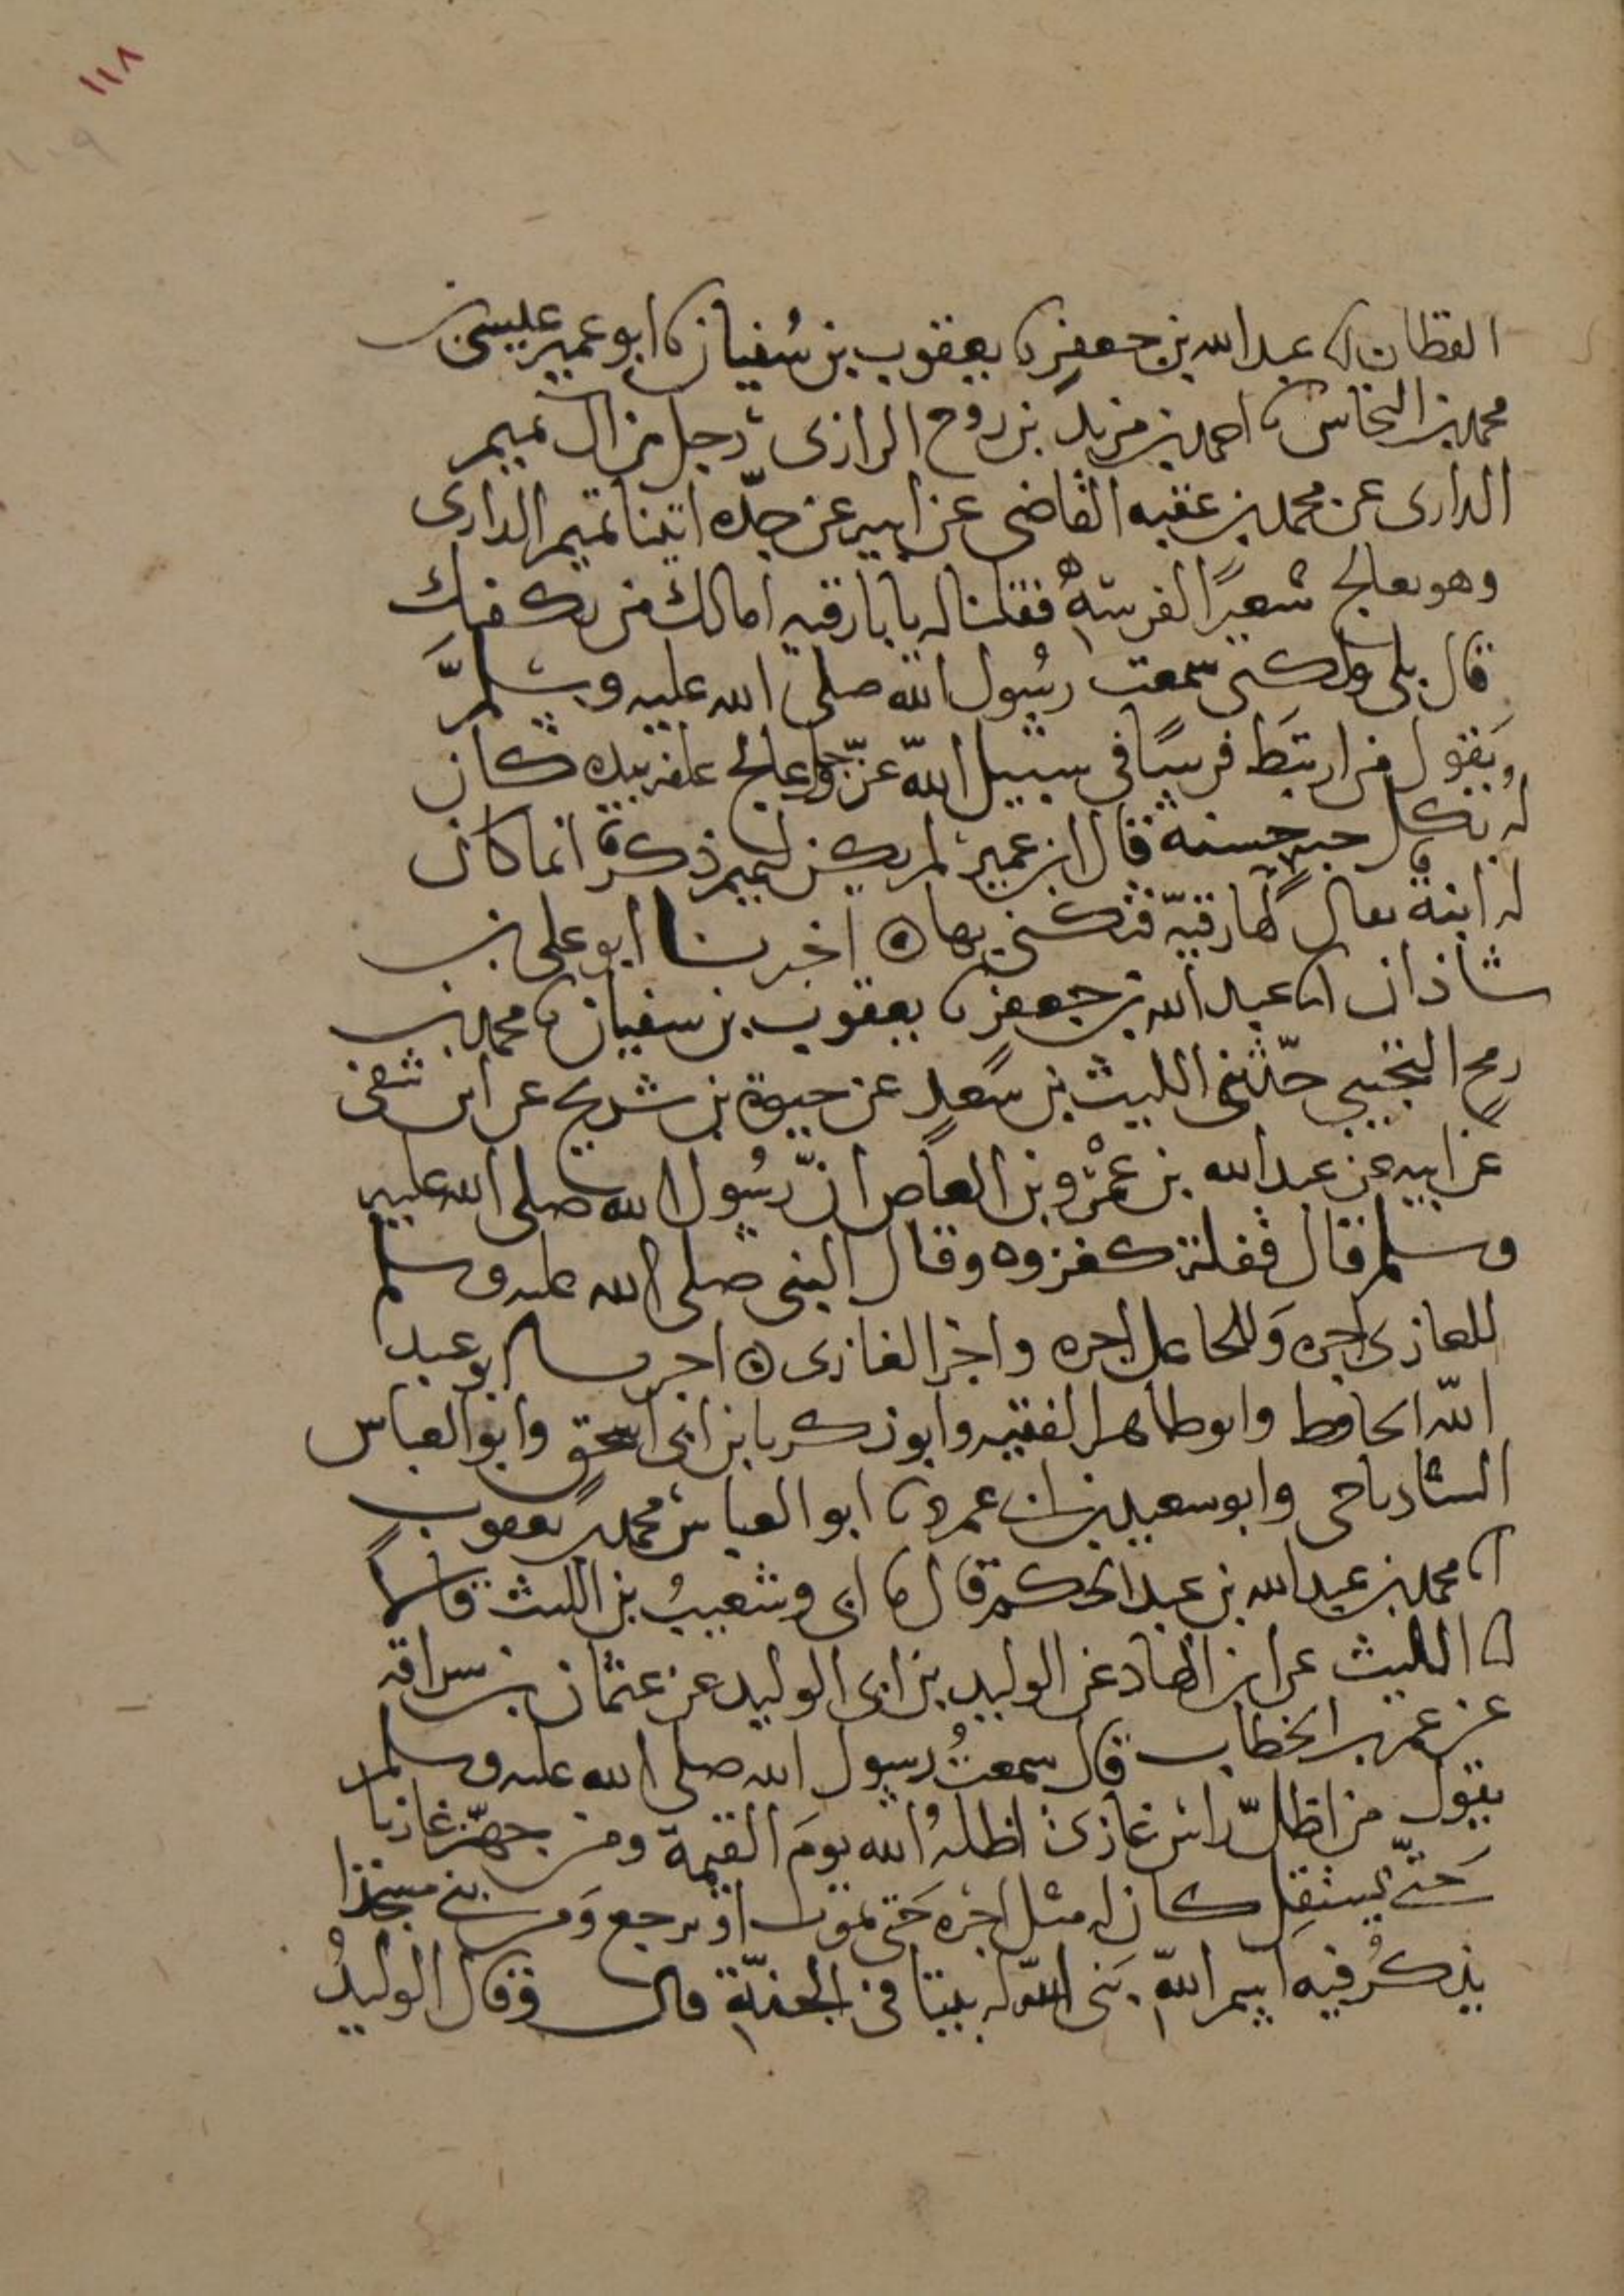 ١١٨
١٠٩
القطان انا عبد الله بن جعفر نا يعقوب بن سُفيان نا ابو عمير عيسى بن
محمد بن النحاس نا احمد بن مزيد بن روح الرازى، رجل من ال تميم
الدارى عن محمد بن عقبه القاضى عن ابيه عن جدّه اتينا تميم الدارى
وهو يعالج شعيرًا لفرسهِ فقلنا له يا بارقيه امالك من يكفيك
قال بلى ولكنى سمعت رسُول الله صلى الله عليه وسلَّم
يَقول من ارتبَط فرسًا فى سبيل الله عزّ وجل فعالج علفه بيده كان
لهُ بكل حبه حسنة قال ابن عمير لم يكن لتميم ذكر انما كان
له ابنة يقال لها رقيّة فتكنى بها ۞ اخبرنا ابو على بن
شاذان انا عبد الله بن جعفر نا يعقوب بن سفيان نا محمد بن
رمح التجيبى حدّثنى الليث بن سَعد عن حيوة بن شريح عن ابن شفى
عن ابيه عن عبد الله بن عمْرو بن العاص انّ رسُول الله صلى الله عليه
وسلم قال قفلة كغزوه وقال النبى صلى الله عليه وسلم
للغازى اجره وَللجاعل اجره واجر الغازى ۞ اخبرنا ابو عبد
الله الحافظ وابو طاهر الفقيه وابو زكريا بن ابى اسحق وابو العباس
الشادياخى وابو سعيد بن ابى عمرو نا ابو العباس محمد بن يعقوب
انا محمد بن عبد الله بن عبد الحكم قال نا ابى وشعيبُ بن الليث قالا
انا الليث عن ابن الهاد عن الوليد بن ابى الوليد عن عثمان بن سراقه
عن عمر بن الخطاب قال سمعتُ رسول الله صلى الله عليه وسلم
يقول من اظلّ راس غازى اظلهُ الله يومَ القيمة ومن جهّز غازيا
حَتّى يستقل كان له مثل اجره حَتى يموت او يرجع وَمن بنى مسجدا
يذكرُ فيه اسم الله بَنى الله له بيتا فى الجنّة قال وقال الوليدُ